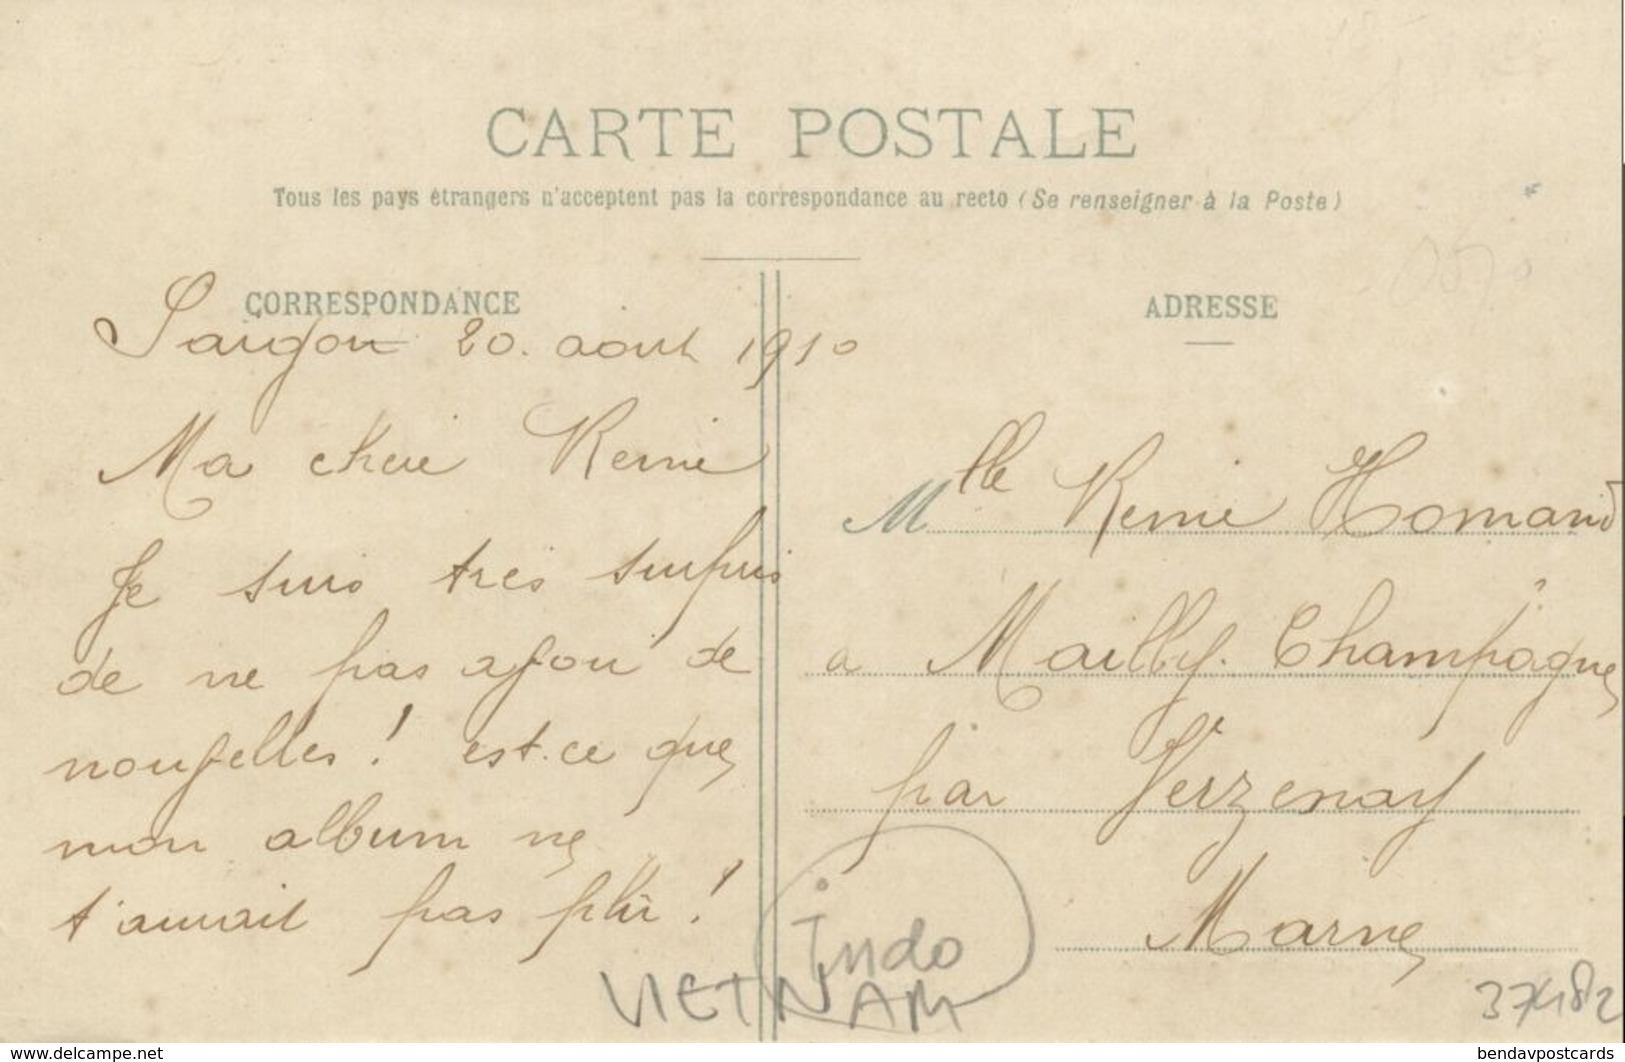 CARTE POSTALE
Tous les pays étrangers n'acceptent pas la correspondance au recto (Se renseigner à la Poste)
CORRESPONDANCE
Saigon 20. août 1910
Ma cheie Renie
Je suis très surpris
de ne pas avoir de
nouvelles ! est-ce que
mon album ne
t'aurait pas plû !
ADRESSE
Mlle Renie Homand
a Mailly-Champagne
par Verzenay
Marne
Indo
VIETNAM
37482
www.delcampe.net
bendavpostcards